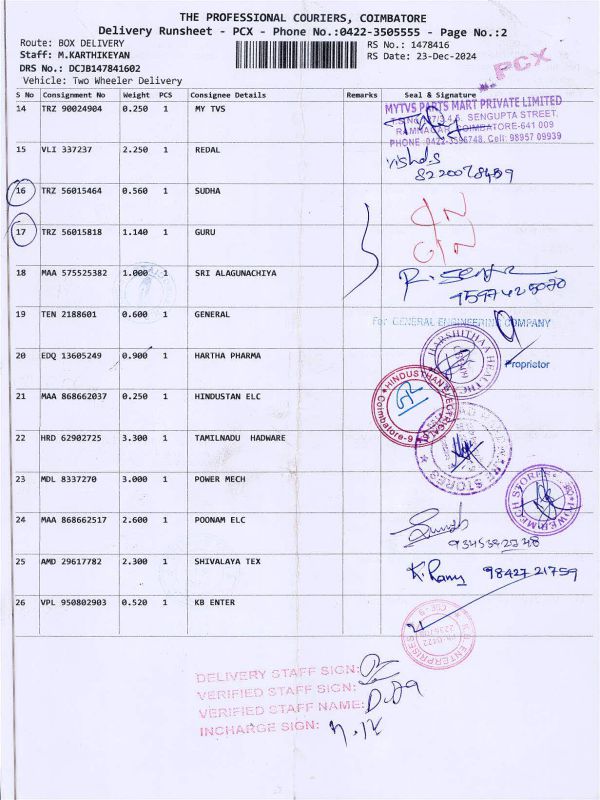 THE PROFESSIONAL COURIERS, COIMBATORE
Delivery Runsheet - PCX - Phone No.:0422-3505555 - Page No.:2
Route: BOX DELIVERY RS No.: 1478416
Staff: M.KARTHIKEYAN RS Date: 23-Dec-2024
DRS No.: DCJB147841602
Vehicle: Two Wheeler Delivery
PCX
S No Consignment No Weight PCS Consignee Details Remarks Seal & Signature
14 TRZ 90024904 0.250 1 MY TVS
MYTVS PARTS MART PRIVATE LIMITED
SENGUPTA STREET,
RAMNAGAR, COIMBATORE-641 009
PHONE: 0422-3596748, Cell: 98957 09939
15 VLI 337237 2.250 1 REDAL
16 TRZ 56015464 0.560 1 SUDHA
17 TRZ 56015818 1.140 1 GURU
18 MAA 575525382 1.000 1 SRI ALAGUNACHIYA
19 TEN 2188601 0.600 1 GENERAL
For GENERAL ENGINEERING COMPANY
Proprietor
20 EDQ 13605249 0.900 1 HARTHA PHARMA
21 MAA 868662037 0.250 1 HINDUSTAN ELC
HINDUSTHAN ELECTRICALS
Coimbatore-9
22 HRD 62902725 3.300 1 TAMILNADU HADWARE
STORES
23 MDL 8337270 3.000 1 POWER MECH
POWERMECH STORES
24 MAA 868662517 2.600 1 POONAM ELC
9345392748
25 AMD 29617782 2.300 1 SHIVALAYA TEX
98427 21759
26 VPL 950802903 0.520 1 KB ENTER
K.B. ENTERPRISES
DELIVERY STAFF SIGN:
VERIFIED STAFF SIGN:
VERIFIED STAFF NAME:
INCHARGE SIGN: